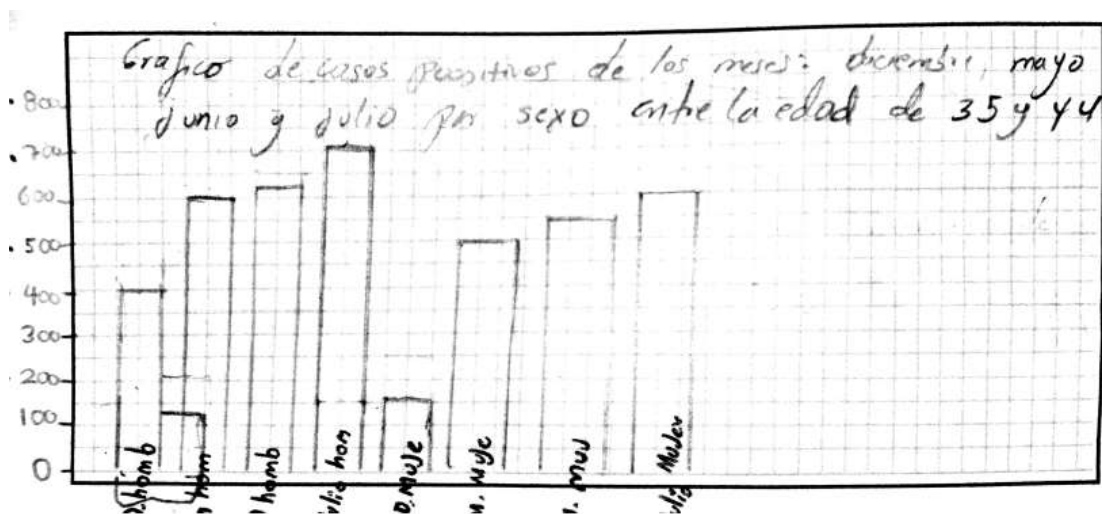 Grafico de casos positivos de los meses: diciembre, mayo
junio y julio por sexo entre la edad de 35 y 44
800
700
600
500
400
300
200
100
0
homb
hom
homb
ulio hom
D. Muje
Muje
Muj
ulio Mujer